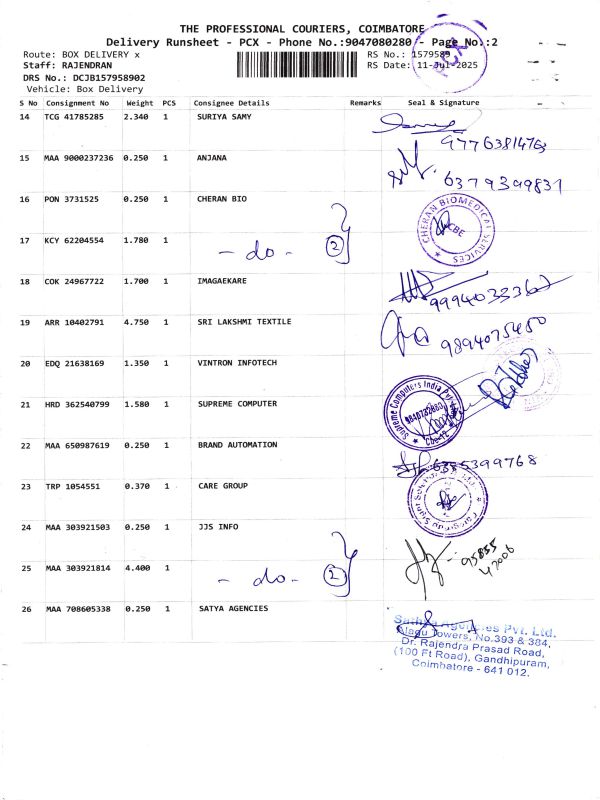 THE PROFESSIONAL COURIERS, COIMBATORE
Delivery Runsheet - PCX - Phone No.:9047080280 - Page No.:2
Route: BOX DELIVERY x
RS No.: 1579589
Staff: RAJENDRAN
RS Date: 11-Jul-2025
DRS No.: DCJB157958902
Vehicle: Box Delivery
PCX
S No Consignment No Weight PCS Consignee Details Remarks Seal & Signature
14 TCG 41785285 2.340 1 SURIYA SAMY
9776381476
15 MAA 9000237236 0.250 1 ANJANA
6379399831
16 PON 3731525 0.250 1 CHERAN BIO
CHERAN BIOMEDICAL SERVICES
CBE
17 KCY 62204554 1.780 1 - do - 2
18 COK 24967722 1.700 1 IMAGAEKARE
19 ARR 10402791 4.750 1 SRI LAKSHMI TEXTILE
9894075450
20 EDQ 21638169 1.350 1 VINTRON INFOTECH
21 HRD 362540799 1.580 1 SUPREME COMPUTER
Supreme Computers India Pvt
22 MAA 650987619 0.250 1 BRAND AUTOMATION
6385399768
23 TRP 1054551 0.370 1 CARE GROUP
24 MAA 303921503 0.250 1 JJS INFO
95855
47006
25 MAA 303921814 4.400 1 - do - 2
26 MAA 708605338 0.250 1 SATYA AGENCIES
Sathya Agencies Pvt. Ltd.
Alagu Towers, No.393 & 384,
Dr. Rajendra Prasad Road,
(100 Ft Road), Gandhipuram,
Coimbatore - 641 012.